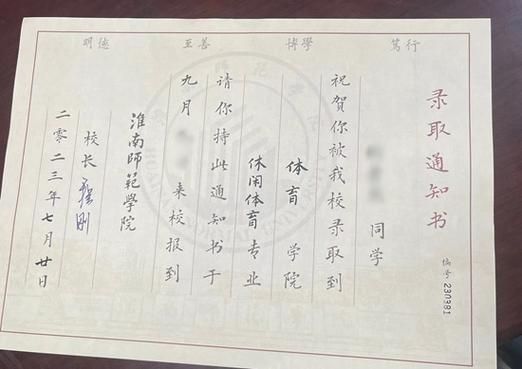 明德 至善 博學 篤行
录取通知书
编号 230381
同学
祝贺你被我校录取到
体育 学院
休闲体育 专业
请你持此通知书于
九月 来校报到
淮南師範學院
校长
二零二三年七月廿日